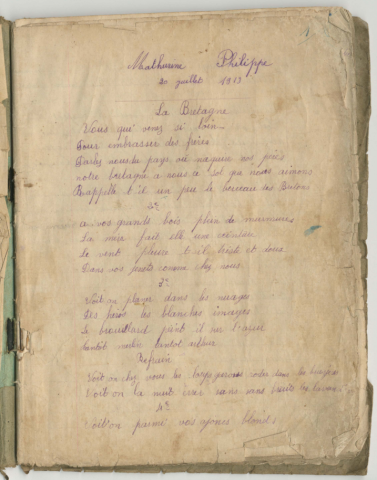 Mathurine Philippe
20 juillet 1913
La Bretagne
Vous qui venez si loin
Pour embrasser des frères
Parlez nous du pays où naquire nos pères
notre bretagne a nous le sol que nous aimons
Rappelle t'il un peu le berceau des Bretons
2e
a vos grands bois plein de murmures
La mer fait elle une ceinture
le vent pleure t'il triste et doux
Dans vos forêts comme chez nous
3e
Voit on planer dans les nuages
Des les blanches images
le brouillard il sur l'azur
tantôt tantôt
Refrain
Voit on chez nous les larges voler dans les
Voit on la nuit sans
4e
Voit on parmi vos ajoncs blonds